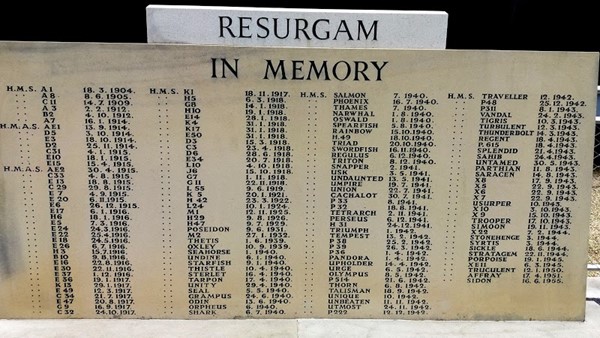 RESURGAM
IN MEMORY
H.M.S. A1 18. 3. 1904.
A8 8. 6. 1905.
C11 14. 7. 1909.
A3 2. 2. 1912.
B2 4. 10. 1912.
A7 16. 1. 1914.
H.M.A.S. AE1 13. 9. 1914.
D5 3. 11. 1914.
D2 25. 11. 1914.
C31 4. 1. 1915.
E10 18. 1. 1915.
E15 15. 4. 1915.
H.M.A.S. AE2 30. 4. 1915.
C33 4. 8. 1915.
E13 18. 8. 1915.
C29 29. 8. 1915.
E7 4. 9. 1915.
E20 6. 11. 1915.
E6 26. 12. 1915.
E17 6. 1. 1916.
H6 18. 1. 1916.
E5 7. 3. 1916.
E24 24. 3. 1916.
E22 25. 4. 1916.
E18 24. 5. 1916.
E26 6. 7. 1916.
H3 15. 7. 1916.
B10 9. 8. 1916.
E16 22. 8. 1916.
E30 22. 11. 1916.
E37 1. 12. 1916.
E36 17. 1. 1917.
K13 29. 1. 1917.
E49 12. 3. 1917.
C34 21. 7. 1917.
E47 20. 8. 1917.
G9 16. 9. 1917.
C32 24. 10. 1917.
H.M.S. K1 18. 11. 1917.
H5 6. 3. 1918.
G8 14. 1. 1918.
H10 19. 1. 1918.
E14 28. 1. 1918.
K4 31. 1. 1918.
K17 31. 1. 1918.
E50 31. 1. 1918.
D3 15. 3. 1918.
C3 23. 4. 1918.
D6 28. 6. 1918.
E34 20. 7. 1918.
L10 4. 10. 1918.
J6 15. 10. 1918.
G7 1. 11. 1918.
G11 22. 11. 1918.
L55 9. 6. 1919.
K5 20. 1. 1921.
H42 23. 3. 1922.
L24 10. 1. 1924.
M1 12. 11. 1925.
H29 9. 8. 1926.
H47 9. 7. 1929.
POSEIDON 9. 6. 1931.
M2 26. 1. 1932.
THETIS 1. 6. 1939.
OXLEY 10. 9. 1939.
SEAHORSE 1940.
UNDINE 6. 1. 1940.
STARFISH 9. 1. 1940.
THISTLE 10. 4. 1940.
STERLET 16. 4. 1940.
TARPON 4. 1940.
UNITY 29. 4. 1940.
SEAL 5. 5. 1940.
GRAMPUS 24. 6. 1940.
ODIN 13. 6. 1940.
ORPHEUS 6. 1940.
SHARK 6. 7. 1940.
H.M.S. SALMON 7. 1940.
PHOENIX 16. 7. 1940.
THAMES 7. 1940.
NARWHAL 1. 8. 1940.
OSWALD 1. 8. 1940.
SPEARFISH 5. 8. 1940.
RAINBOW 15. 10. 1940.
H.49 18. 10. 1940.
TRIAD 20. 10. 1940.
SWORDFISH 16. 11. 1940.
REGULUS 6. 12. 1940.
TRITON 8. 12. 1940.
SNAPPER 2. 1941.
USK 5. 1941.
UNDAUNTED 13. 5. 1941.
UMPIRE 19. 7. 1941.
UNION 22. 7. 1941.
CACHALOT 30. 7. 1941.
P33 8. 1941.
P32 18. 8. 1941.
TETRARCH 2. 11. 1941.
PERSEUS 6. 12. 1941.
H31 24. 12. 1941.
TRIUMPH 1. 1942.
TEMPEST 13. 2. 1942.
P38 25. 2. 1942.
P39 26. 3. 1942.
P36 1. 4. 1942.
PANDORA 1. 4. 1942.
UPHOLDER 14. 4. 1942.
URGE 5. 1942.
OLYMPUS 8. 5. 1942.
P514 21. 6. 1942.
THORN 6. 8. 1942.
TALISMAN 18. 9. 1942.
UNIQUE 10. 1942.
UNBEATEN 11. 11. 1942.
UTMOST 24. 11. 1942.
P222 12. 12. 1942.
H.M.S. TRAVELLER 12. 1942.
P48 25. 12. 1942.
P311 8. 1. 1943.
VANDAL 24. 2. 1943.
TIGRIS 10. 3. 1943.
TURBULENT 12. 3. 1943.
THUNDERBOLT 14. 3. 1943.
REGENT 18. 4. 1943.
P. 615 18. 4. 1943.
SPLENDID 21. 4. 1943.
SAHIB 24. 4. 1943.
UNTAMED 30. 5. 1943.
PARTHIAN 11. 8. 1943.
SARACEN 14. 8. 1943.
X5 22. 9. 1943.
X8 9. 1943.
X6 22. 9. 1943.
X7 22. 9. 1943.
USURPER 10. 1943.
X9 9. 1943.
TROOPER 17. 10. 1943.
SIMOON 19. 11. 1943.
X22 2. 1944.
STONEHENGE 3. 1944.
SYRTIS 3. 1944.
SICKLE 18. 6. 1944.
STRATAGEM 22. 11. 1944.
PORPOISE 19. 1. 1945.
XE11 6. 3. 1945.
TRUCULENT 12. 1. 1950.
AFFRAY 17. 4. 1951.
SIDON 16. 6. 1955.